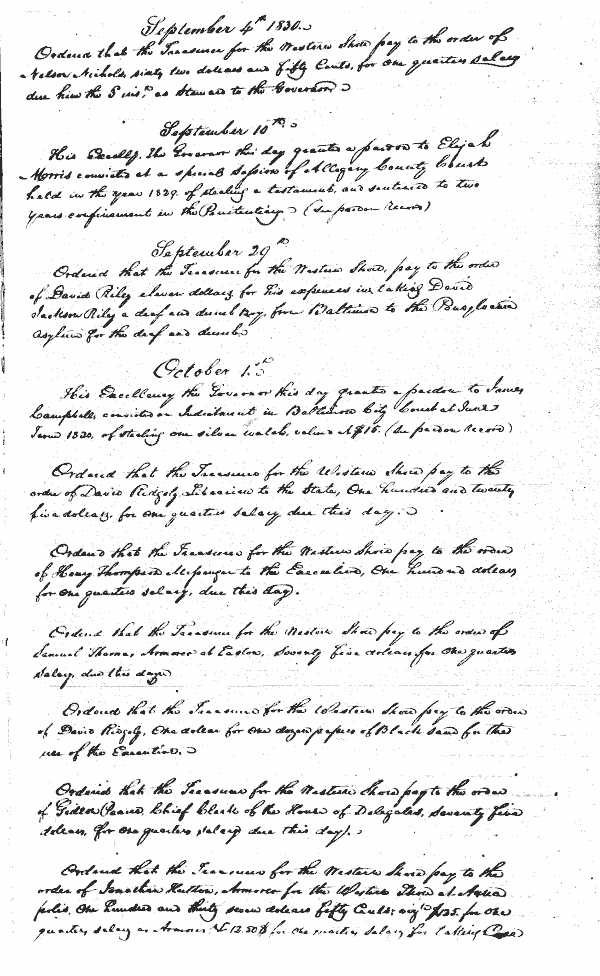 September 4th 1830.
Ordered that the Treasurer for the Western Shore pay to the order of
Nelson Nichols, sixty two dollars and fifty Cents, for one quarters salary
due him the 5 inst. as Steward to the Governor
September 10th
His Excelly. the Governor this day granted a pardon to Elijah
Morris convicted at a special Session of Allegany County Court
held in the year 1829. of stealing a testament, and sentenced to two
years confinement in the Penitentiary (See pardon Record)
September 29th
Ordered that the Treasurer for the Western Shore, pay to the order
of David Riley eleven dollars for his expenses in taking David
Jackson Riley a deaf and dumb boy, from Baltimore to the Pensylvania
Asylum for the deaf and dumb.
October 1.st
His Excellency the Governor this day granted a pardon to James
Campbell, convicted on Indictment in Baltimore City Court at June
Term 1830, of stealing one silver watch, value $15. (See pardon record)
Ordered that the Treasurer for the Western Shore pay to the
order of David Ridgely Librarian to the State, One hundred and twenty
five dollars, for one quarters salary due this day.
Ordered that the Treasurer for the Western Shore pay to the order
of Henry Thompson Messenger to the Executive, One hundred dollars
for one quarters salary, due this day.
Ordered that the Treasurer for the Western Shore pay to the order of
Samuel Thomas, Armorer at Easton, Seventy five dollars for one quarters
salary, due this day
Ordered that the Treasurer for the Western Shore pay to the order
of David Ridgely, One dollar for one dozen papers of Black sand for the
use of the Executive.
Ordered that the Treasurer for the Western Shore pay to the order
of Gideon Pearce, Chief Clerk of the House of Delegates, seventy five
dollars, for one quarters salary due this day.
Ordered that the Treasurer for the Western Shore pay to the
order of Jonathan Hutton, Armorer for the Western Shore at Anna
polis, One hundred and thirty seven dollars fifty Cents; viz $125. for one
quarters salary as Armorer & 12.50 for one quarters salary for taking Care